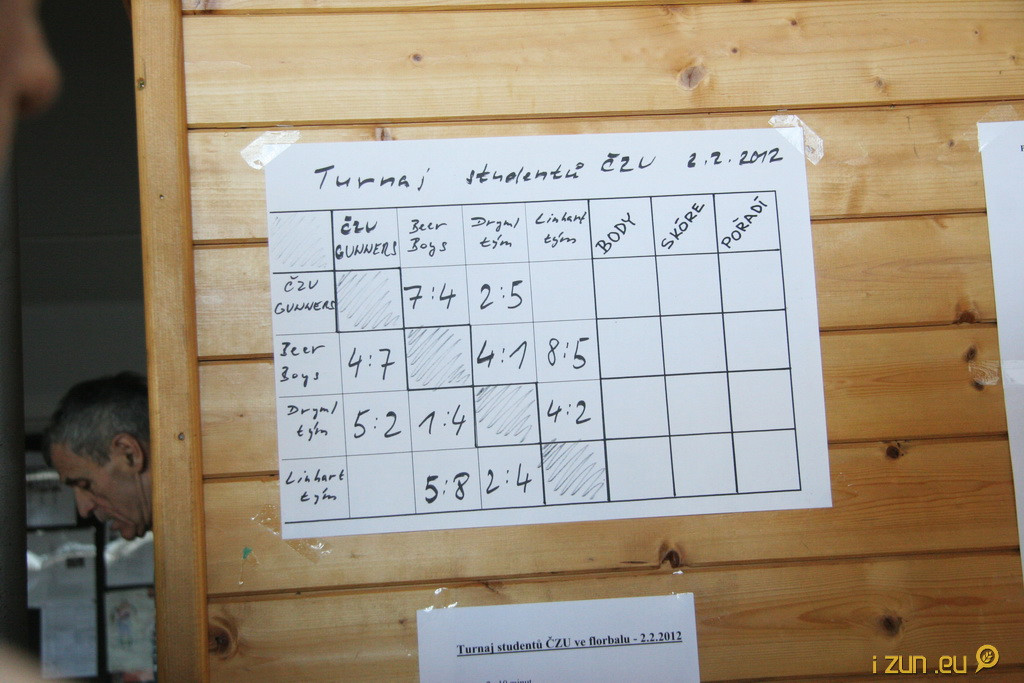 Turnaj studentů ČZU 2.2.2012
ČZU GUNNERS Beer Boys Dryml tým Linhart tým BODY SKÓRE POŘADÍ
ČZU GUNNERS 7:4 2:5
Beer Boys 4:7 4:1 8:5
Dryml tým 5:2 1:4 4:2
Linhart tým 5:8 2:4
Turnaj studentů ČZU ve florbalu - 2.2.2012
izun.eu